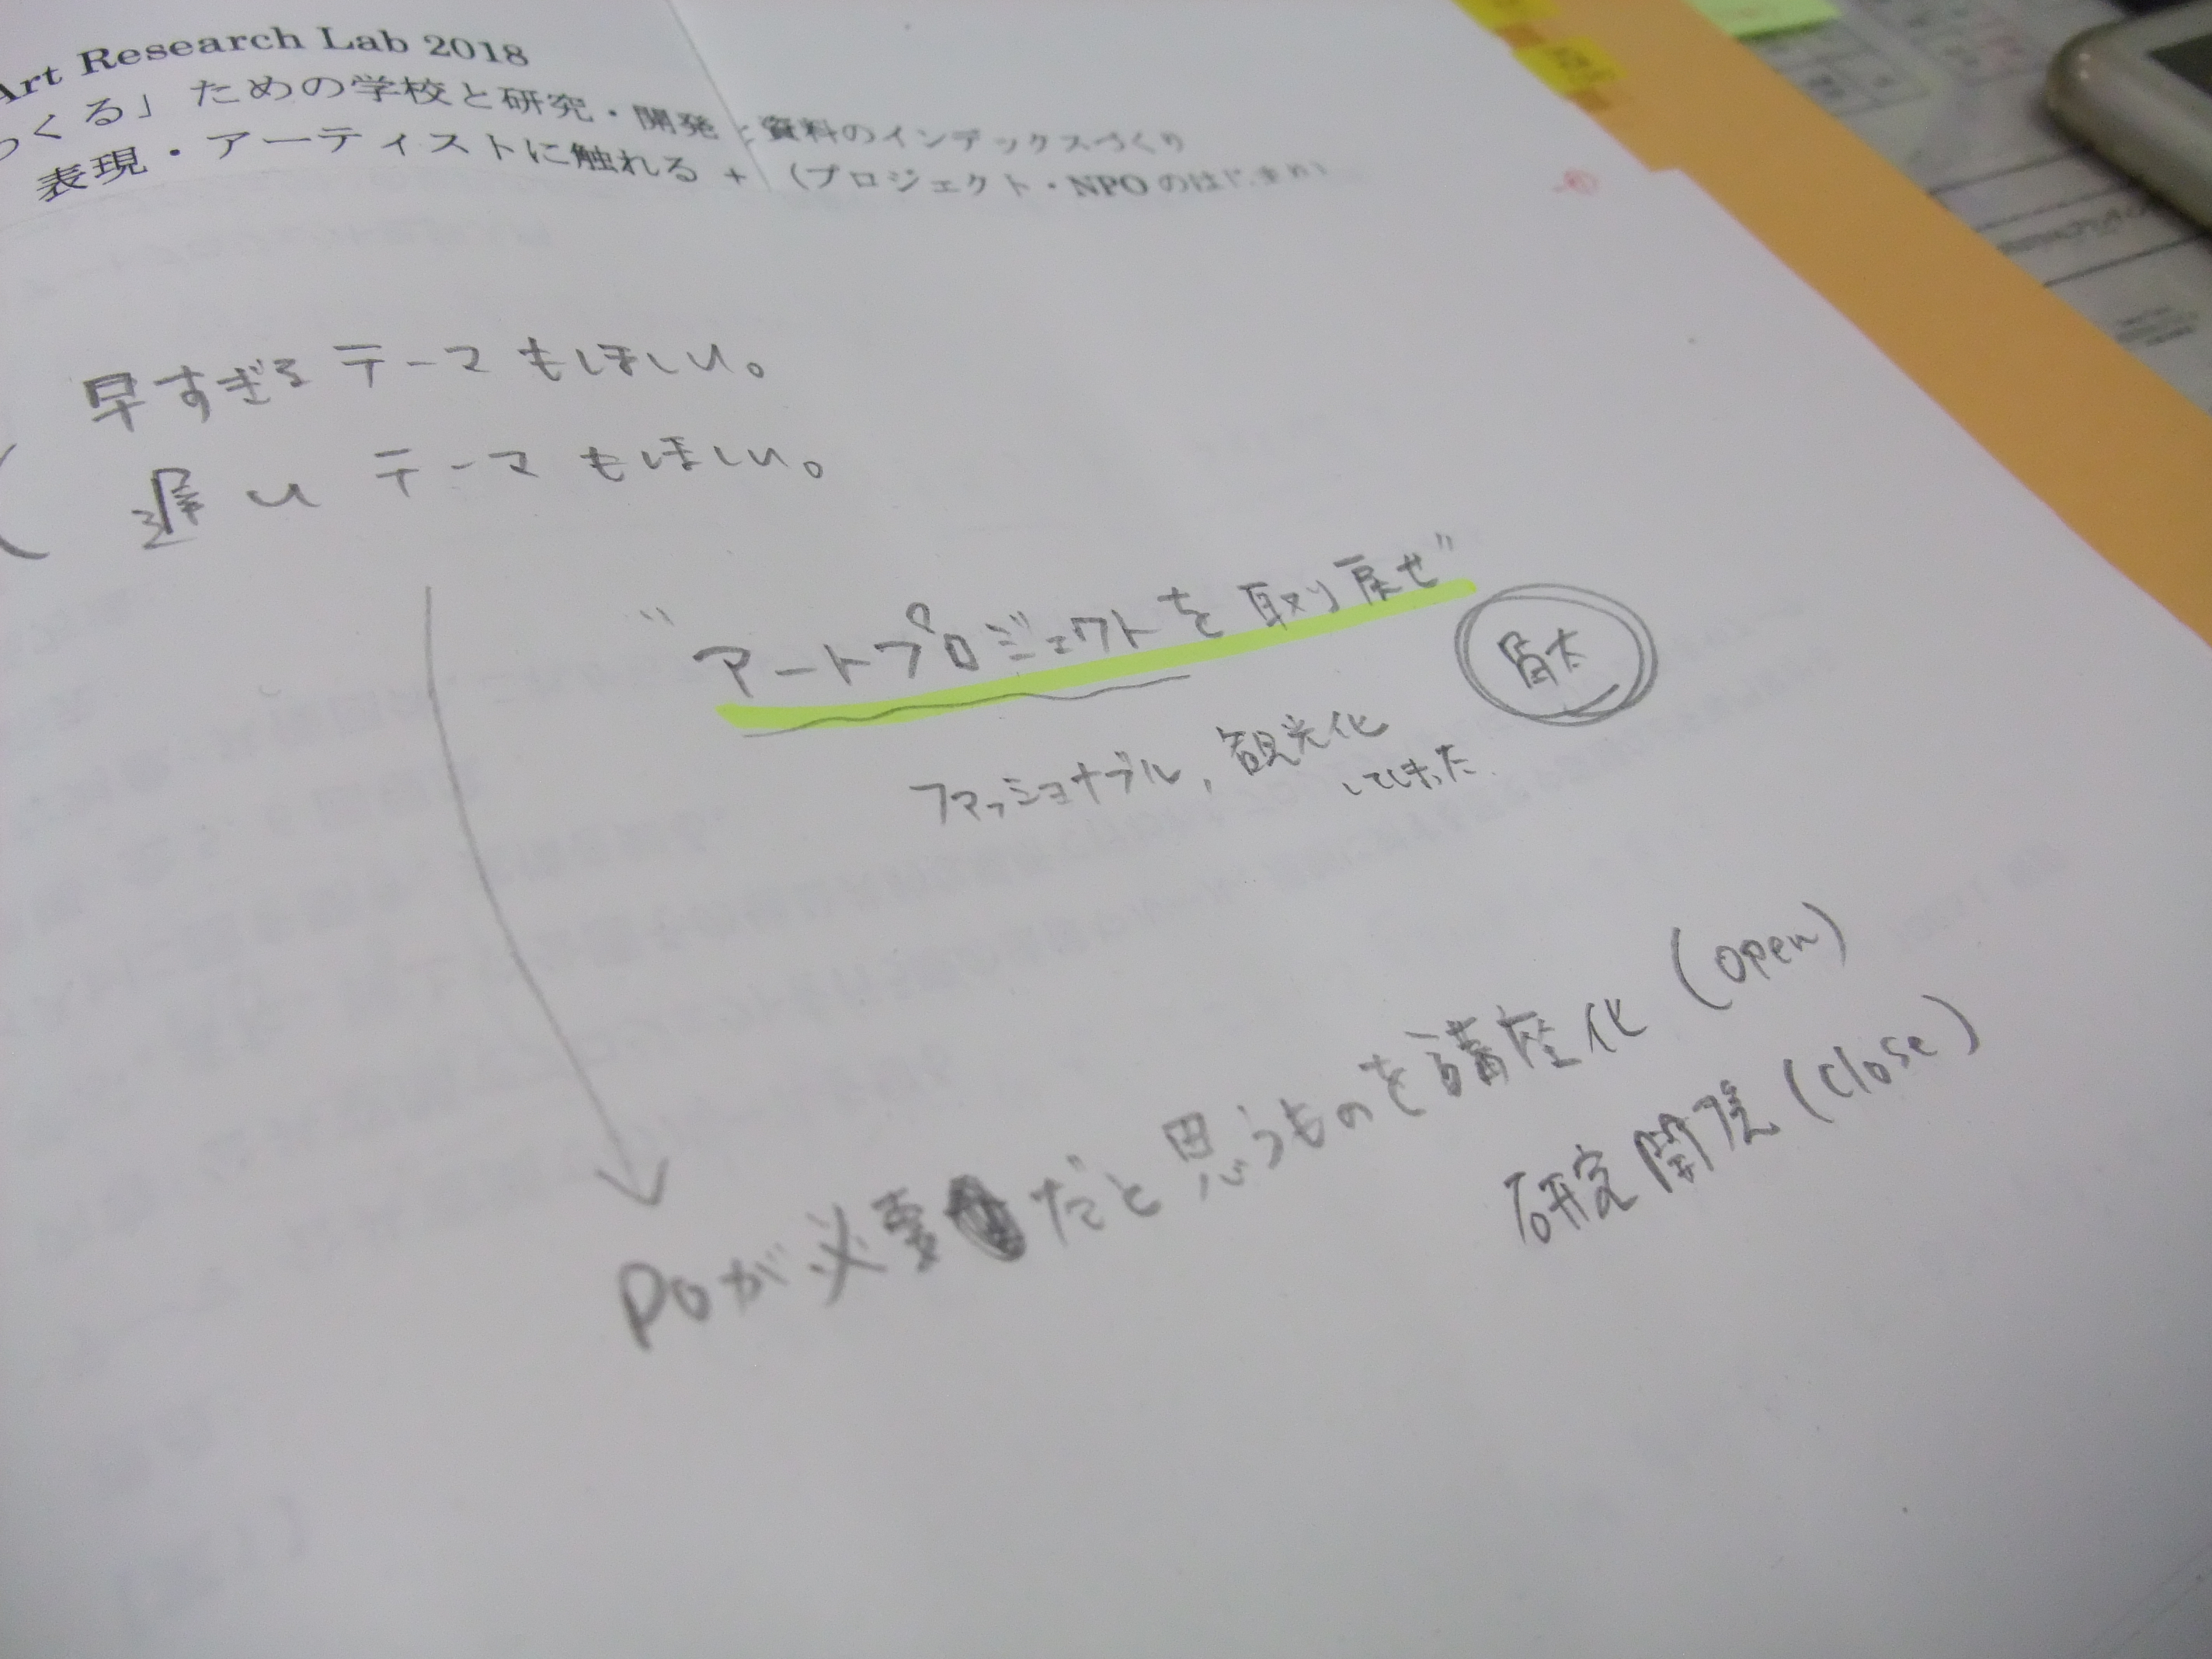 Art Research Lab 2018
つくる」ための学校と研究・開発 資料のインデックスづくり
表現・アーティストに触れる + (プロジェクト・NPOのはじまり)
早すぎる テーマ もほしい。
遅い テーマ もほしい。
"アートプロジェクトを取り戻せ"
骨太
ファッショナブル, 観光化
してしまった
POが必要だと思うものを講座化 (open)
研究開発 (close)